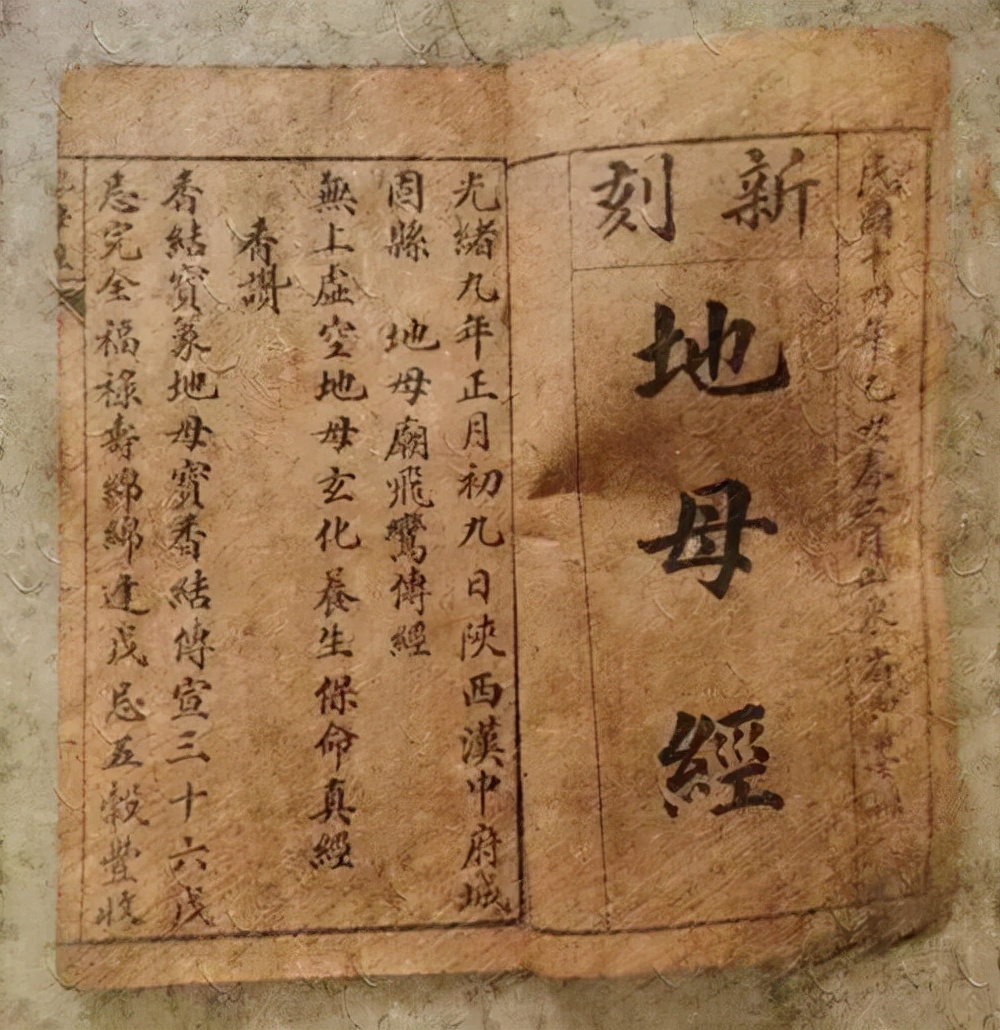 民國十四年乙丑春二月
新刻
地母經
光緒九年正月初九日陝西漢中府城
固縣 地母廟飛鸞傳經
無上虛空地母玄化養生保命真經
香讚
香結寶篆地母寶香結傳宣三十六戊
忌完全福祿壽綿綿逢戊忌五穀豐收